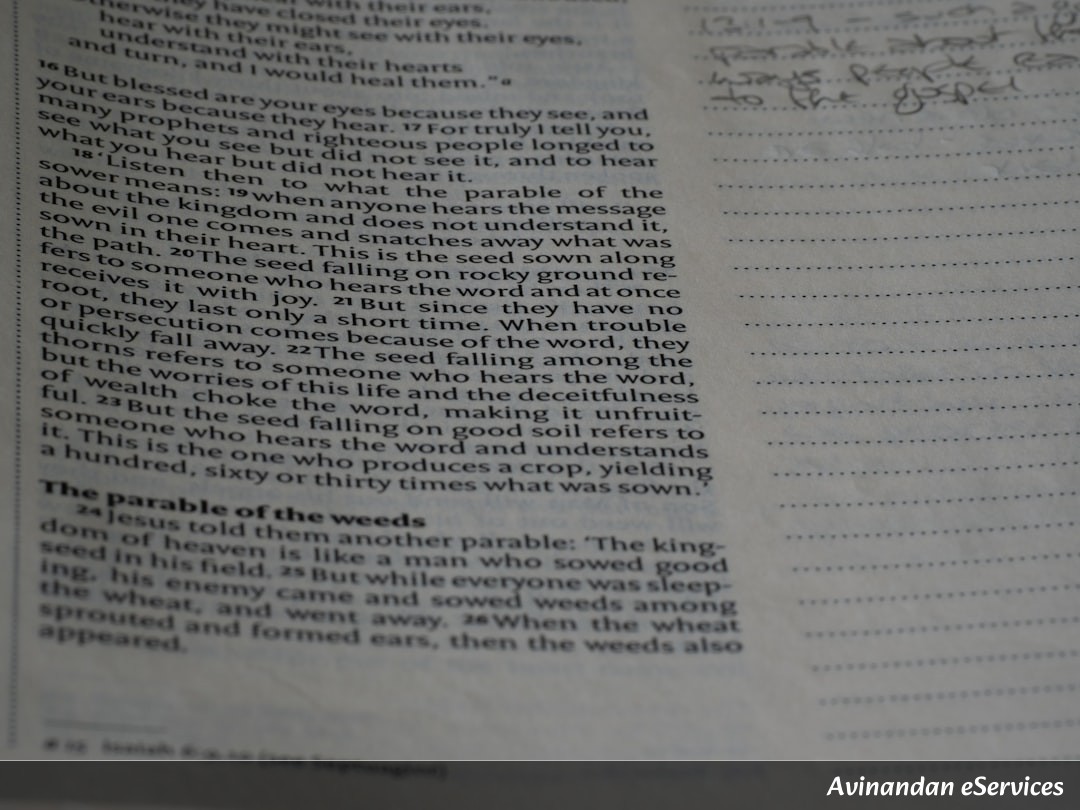 hear with their ears,
they have closed their eyes.
therwise they might see with their eyes,
hear with their ears,
understand with their hearts
and turn, and I would heal them." a
16 But blessed are your eyes because they see, and
your ears because they hear. 17 For truly I tell you,
many prophets and righteous people longed to
see what you see but did not see it, and to hear
what you hear but did not hear it.
18 ‘Listen then to what the parable of the
sower means: 19 when anyone hears the message
about the kingdom and does not understand it,
the evil one comes and snatches away what was
sown in their heart. This is the seed sown along
the path. 20 The seed falling on rocky ground re-
fers to someone who hears the word and at once
receives it with joy. 21 But since they have no
root, they last only a short time. When trouble
or persecution comes because of the word, they
quickly fall away. 22 The seed falling among the
thorns refers to someone who hears the word,
but the worries of this life and the deceitfulness
of wealth choke the word, making it unfruit-
ful. 23 But the seed falling on good soil refers to
someone who hears the word and understands
it. This is the one who produces a crop, yielding
a hundred, sixty or thirty times what was sown.’
The parable of the weeds
24 Jesus told them another parable: ‘The king-
dom of heaven is like a man who sowed good
seed in his field. 25 But while everyone was sleep-
ing, his enemy came and sowed weeds among
the wheat, and went away. 26 When the wheat
sprouted and formed ears, then the weeds also
appeared.
Isaiah (see Septuagint)
parable about
people
to the gospel
Avinandan eServices